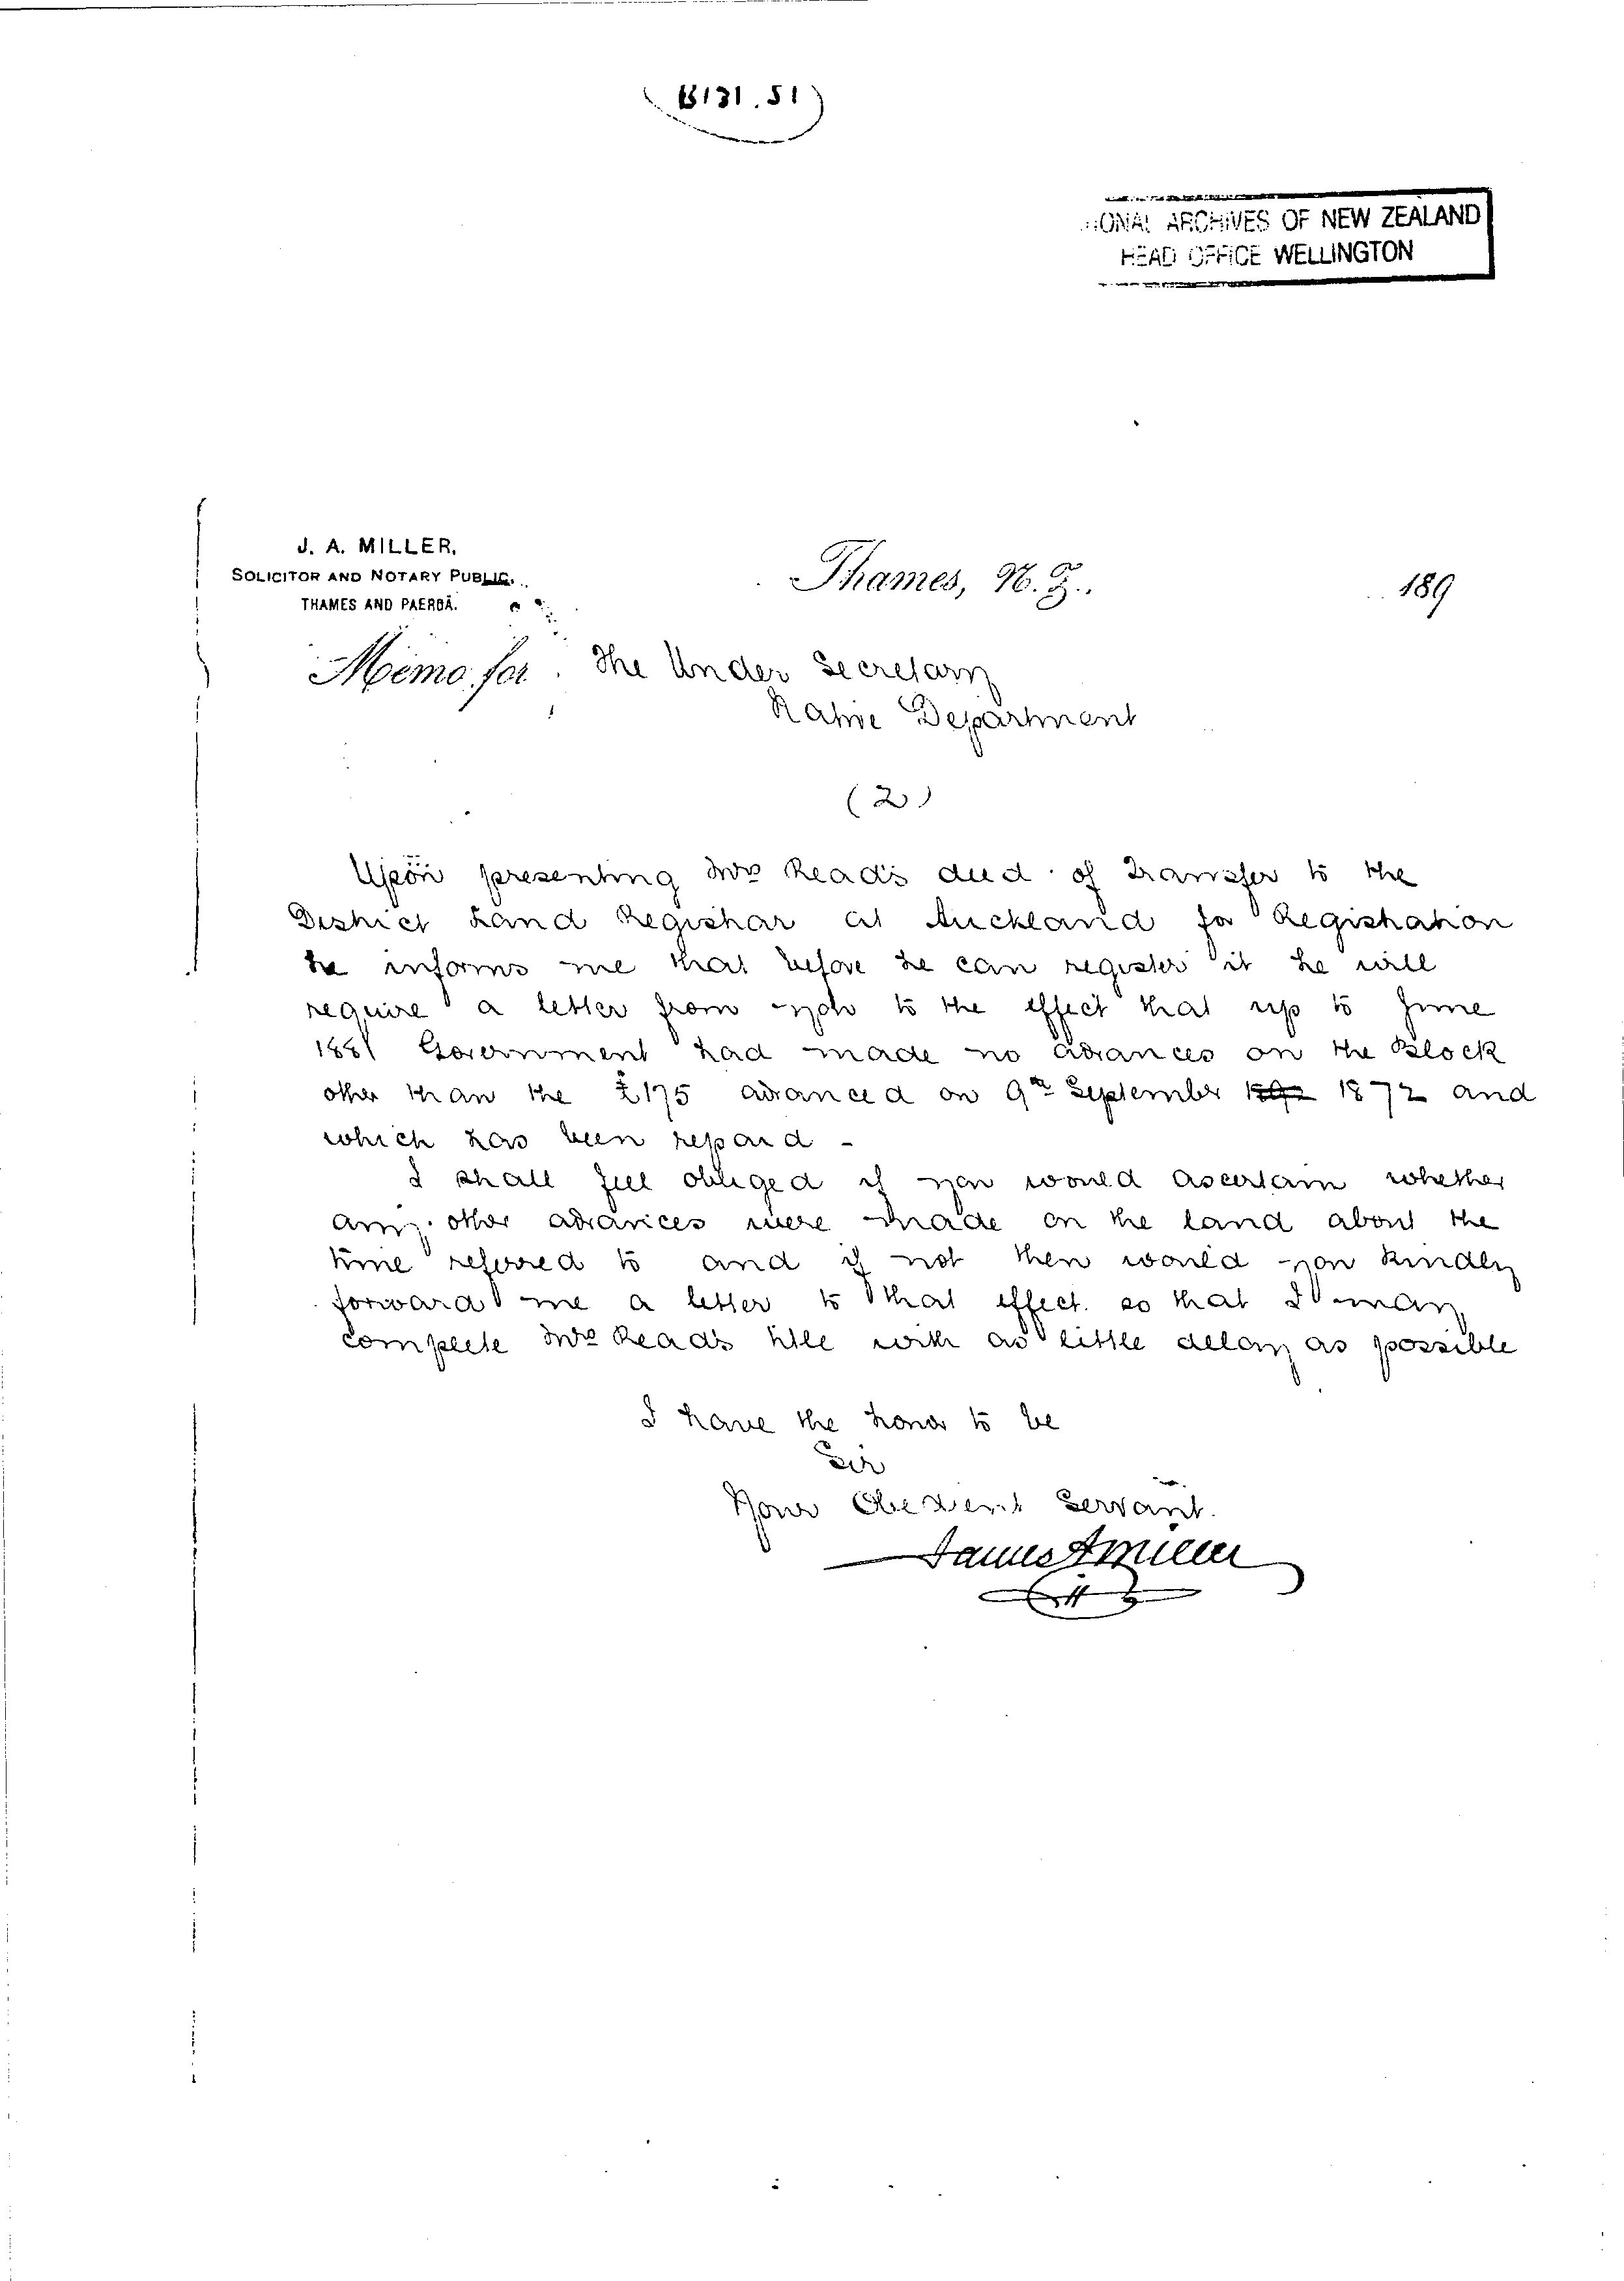 B131.51
ONAL ARCHIVES OF NEW ZEALAND
HEAD OFFICE WELLINGTON
J. A. MILLER.
SOLICITOR AND NOTARY PUBLIC.
THAMES AND PAEROA.
Thames, N. Z.
189
Memo for The Under Secretary
Native Department
(2)
Upon presenting Mrs Read's deed of Transfer to the
District Land Registrar at Auckland for Registration
he informs me that before he can register it he will
require a letter from you to the effect that up to June
1881 Government had made no advances on the Block
other than the £175 advanced on 9th September 1872 and
which has been repaid -
I shall feel obliged if you would ascertain whether
any other advances were made on the land about the
time referred to and if not then would you kindly
forward me a letter to that effect. so that I may
complete Mrs Read's title with as little delay as possible
I have the honor to be
Sir
Your Obedient Servant.
James A Miller